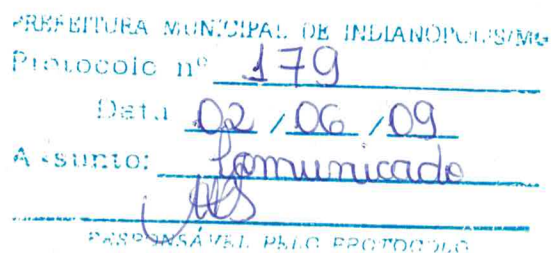 PREFEITURA MUNICIPAL DE INDIANÓPOLIS/MG
Protocolo nº 179
Data 02/06/09
Assunto: Comunicado
RESPONSÁVEL PELO PROTOCOLO